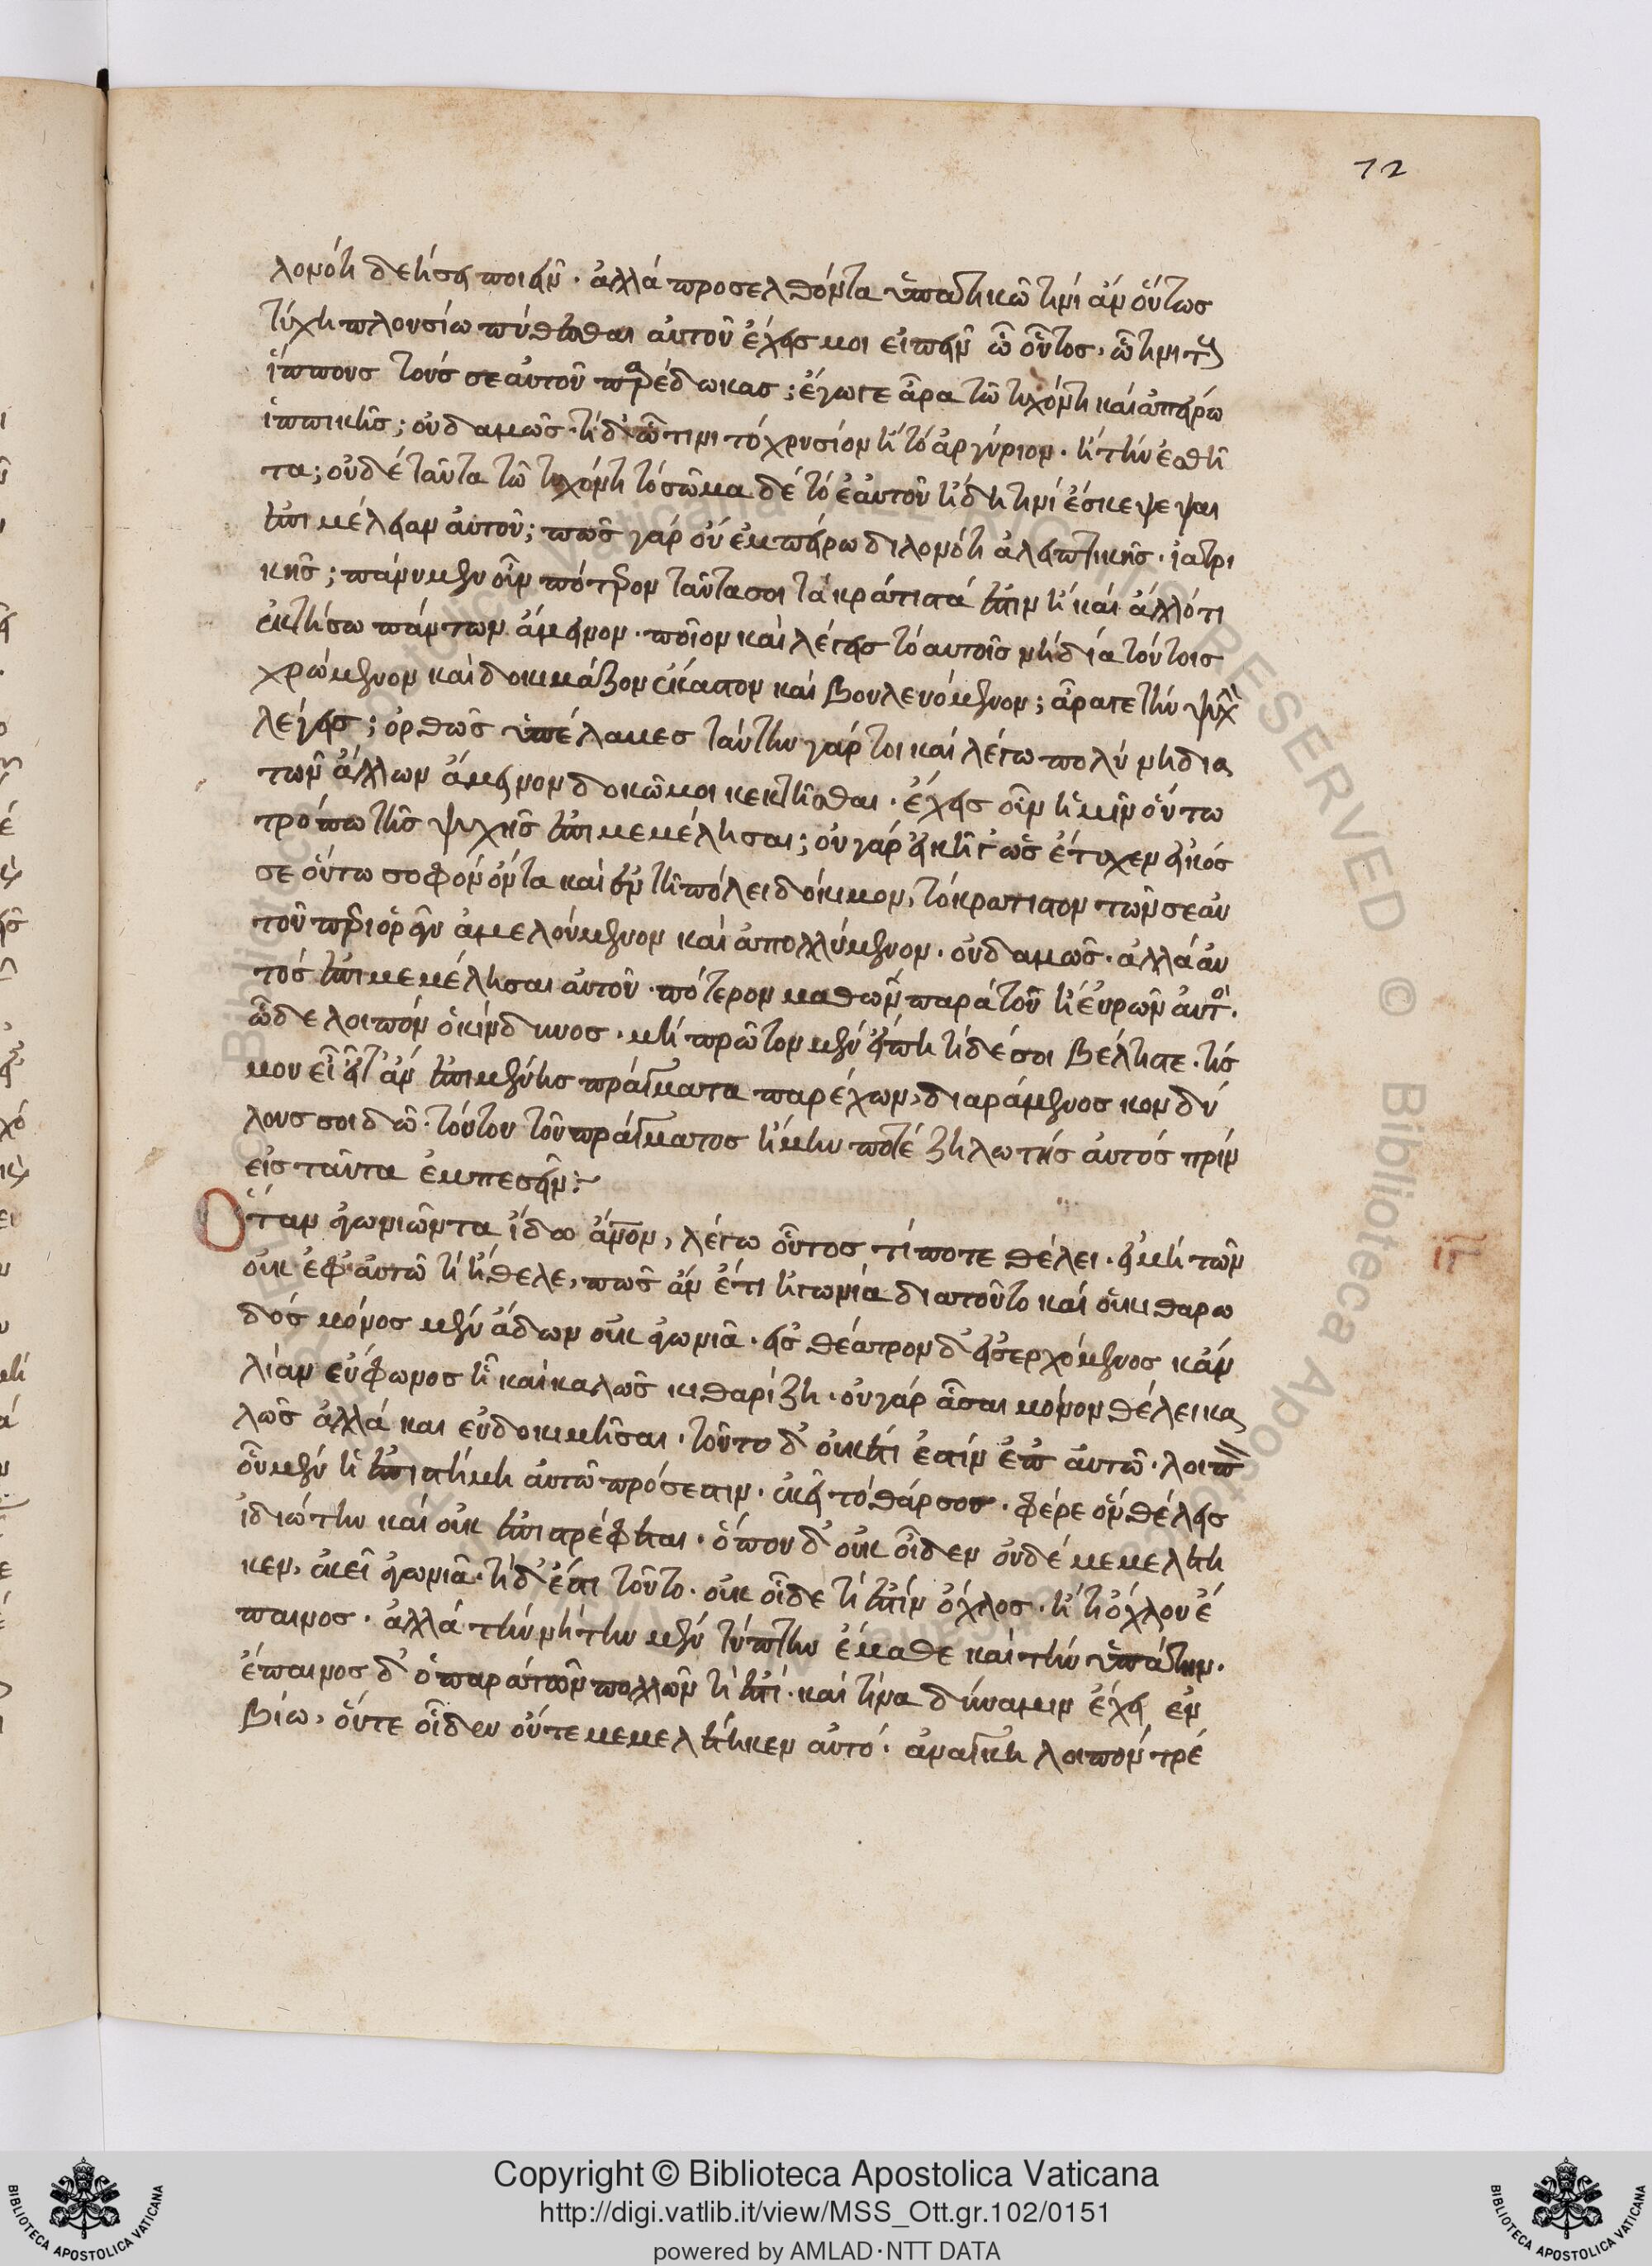 72
λομότι δεήσει ποιεῖν· ἀλλὰ προσελθόντα ὑπατικῶ τινὶ ἂν οὕτως
τύχη πλουσίω πύθεσθαι αὐτοῦ ἔχεις μοι εἰπεῖν ὦ οὗτος, ὧτινι τοὺς
ἵππους τοὺς σεαυτοῦ παρέδωκας; ἔγωγε ἆρα τῶ τυχόντι καὶ ἀπείρω
ἱππικῆς; οὐδαμῶς· τί δ' ὧτινι τὸ χρυσίον ἢ τὸ ἀργύριον· ἢ τὴν ἐσθῆ
τα; οὐδὲ ταῦτα τῶ τυχόντι τὸ σῶμα δὲ τὸ ἑαυτοῦ ἤδη τινὶ ἔσκεψαι
ἐπιμέλειαν αὐτοῦ; πῶς γὰρ οὒ ἐμπείρω διλονότι ἀλειπτικῆς· ἰατρι
κῆς; πάνυ μὲν οὖν πότερον ταῦτα σοι τὰ κράτιστά ἐστιν ἢ καὶ ἄλλό τι
ἐκτήσω πάντων ἄμεινον· ποῖον καὶ λέγεις τὸ αυτοῖς νηδία τούτοις
χρώμενον καὶ δοκιμάζον ἕκαστον καὶ βουλευόμενον; ἆρά γε τὴν ψυχὴν
λέγεις; ὀρθῶς ὑπέλαμες ταύτην γάρ τοι καὶ λέγω πολὺ νηδια
τῶν ἄλλων ἄμεινον δοκῶ μοι κεκτῆσθαι· ἔχεις οὖν ἡμῖν οὕτω
τρόπω τῆς ψυχῆς ἐπιμεμέλησαι; οὐ γὰρ εἰκῆ γ' ὡς ἔτυχεν εἰκός
σε οὕτω σοφὸν ὄντα καὶ ἐν τῆ πόλει δόκιμον, τὸ κρατιστον τῶν σεαυ
τοῦ περιορᾶν ἀμελούμενον καὶ ἀπολλύμενον· οὐδαμῶς· ἀλλὰ αὐ
τὸς ἐπιμεμέλησαι αὐτοῦ· πότερον μαθὼν παρά τοῦ ἢ εὑρὼν αὐτός·
ὧδε λοιπὸν ὁ κίνδυνος· μὴ πρῶτον μὲν εἴπη τί δέ σοι βέλτιστε· τίς
μου εἶ εἶτ' ἂν ἐπιμένης πράγματα παρέχων, διαράμενος κονδύ
λους σοι δῶ· τούτου τοῦ πράγματος ἤμην ποτὲ ζηλωτὴς αὐτός πρίν
εἰς ταῦτα ἐμπεσεῖν:
Ὅταν ἀγωνιῶντα ἴδω ἄνθρωπον, λέγω οὗτος τί ποτε θέλει· εἰ μὴ τῶν
οὐκ ἐφ' αὐτῶ τί ἤθελε, πῶς ἂν ἔτι ἠγωνία διατοῦτο καὶ ὁ κιθαρω
δὸς μόνος μὲν ἄδων οὐκ ἀγωνιᾶ· εἰς θέατρον δ' εἰσερχόμενος κἂν
λίαν εὔφωνος ἦ καὶ καλῶς κιθαρίζη· οὐ γὰρ ἆσαι μόνον θέλει κα
λῶς ἀλλὰ και εὐδοκιμῆσαι· τοῦτο δ' οὐκέτι ἐστὶν ἐπ' αὐτῶ· λοιπὸν
οὗ μὲν ἡ ἐπιστήμη αὐτῶ πρόσεστιν· ἐκεῖ τὸ θάρσος· φέρε ὃν θέλεις
ἰδιώτην καὶ οὐκ ἐπιστρέφεται· ὅπου δ' οὐκ οἶδεν οὐδὲ μεμελέτη
κεν, ἐκεῖ ἀγωνιᾶ· τί δ' ἔστι τοῦτο· οὐκ οἶδε τί ἐστὶν ὄχλος· ἢ τί ὄχλου ἔ
παινος· ἀλλὰ τὴν νήτην μὲν τύπτην ἔμαθε καὶ τὴν ὑπάτην·
ἔπαινος δ' ὁ παρὰ τῶν πολλῶν τί ἐστί· καὶ τίνα δύναμιν ἔχει ἐν
βίω, οὔτε οἶδεν οὔτε μεμελέτηκεν αὐτό· ἀνάγκη λοιπὸν τρέ
Copyright © Biblioteca Apostolica Vaticana
http://digi.vatlib.it/view/MSS_Ott.gr.102/0151
powered by AMLAD·NTT DATA